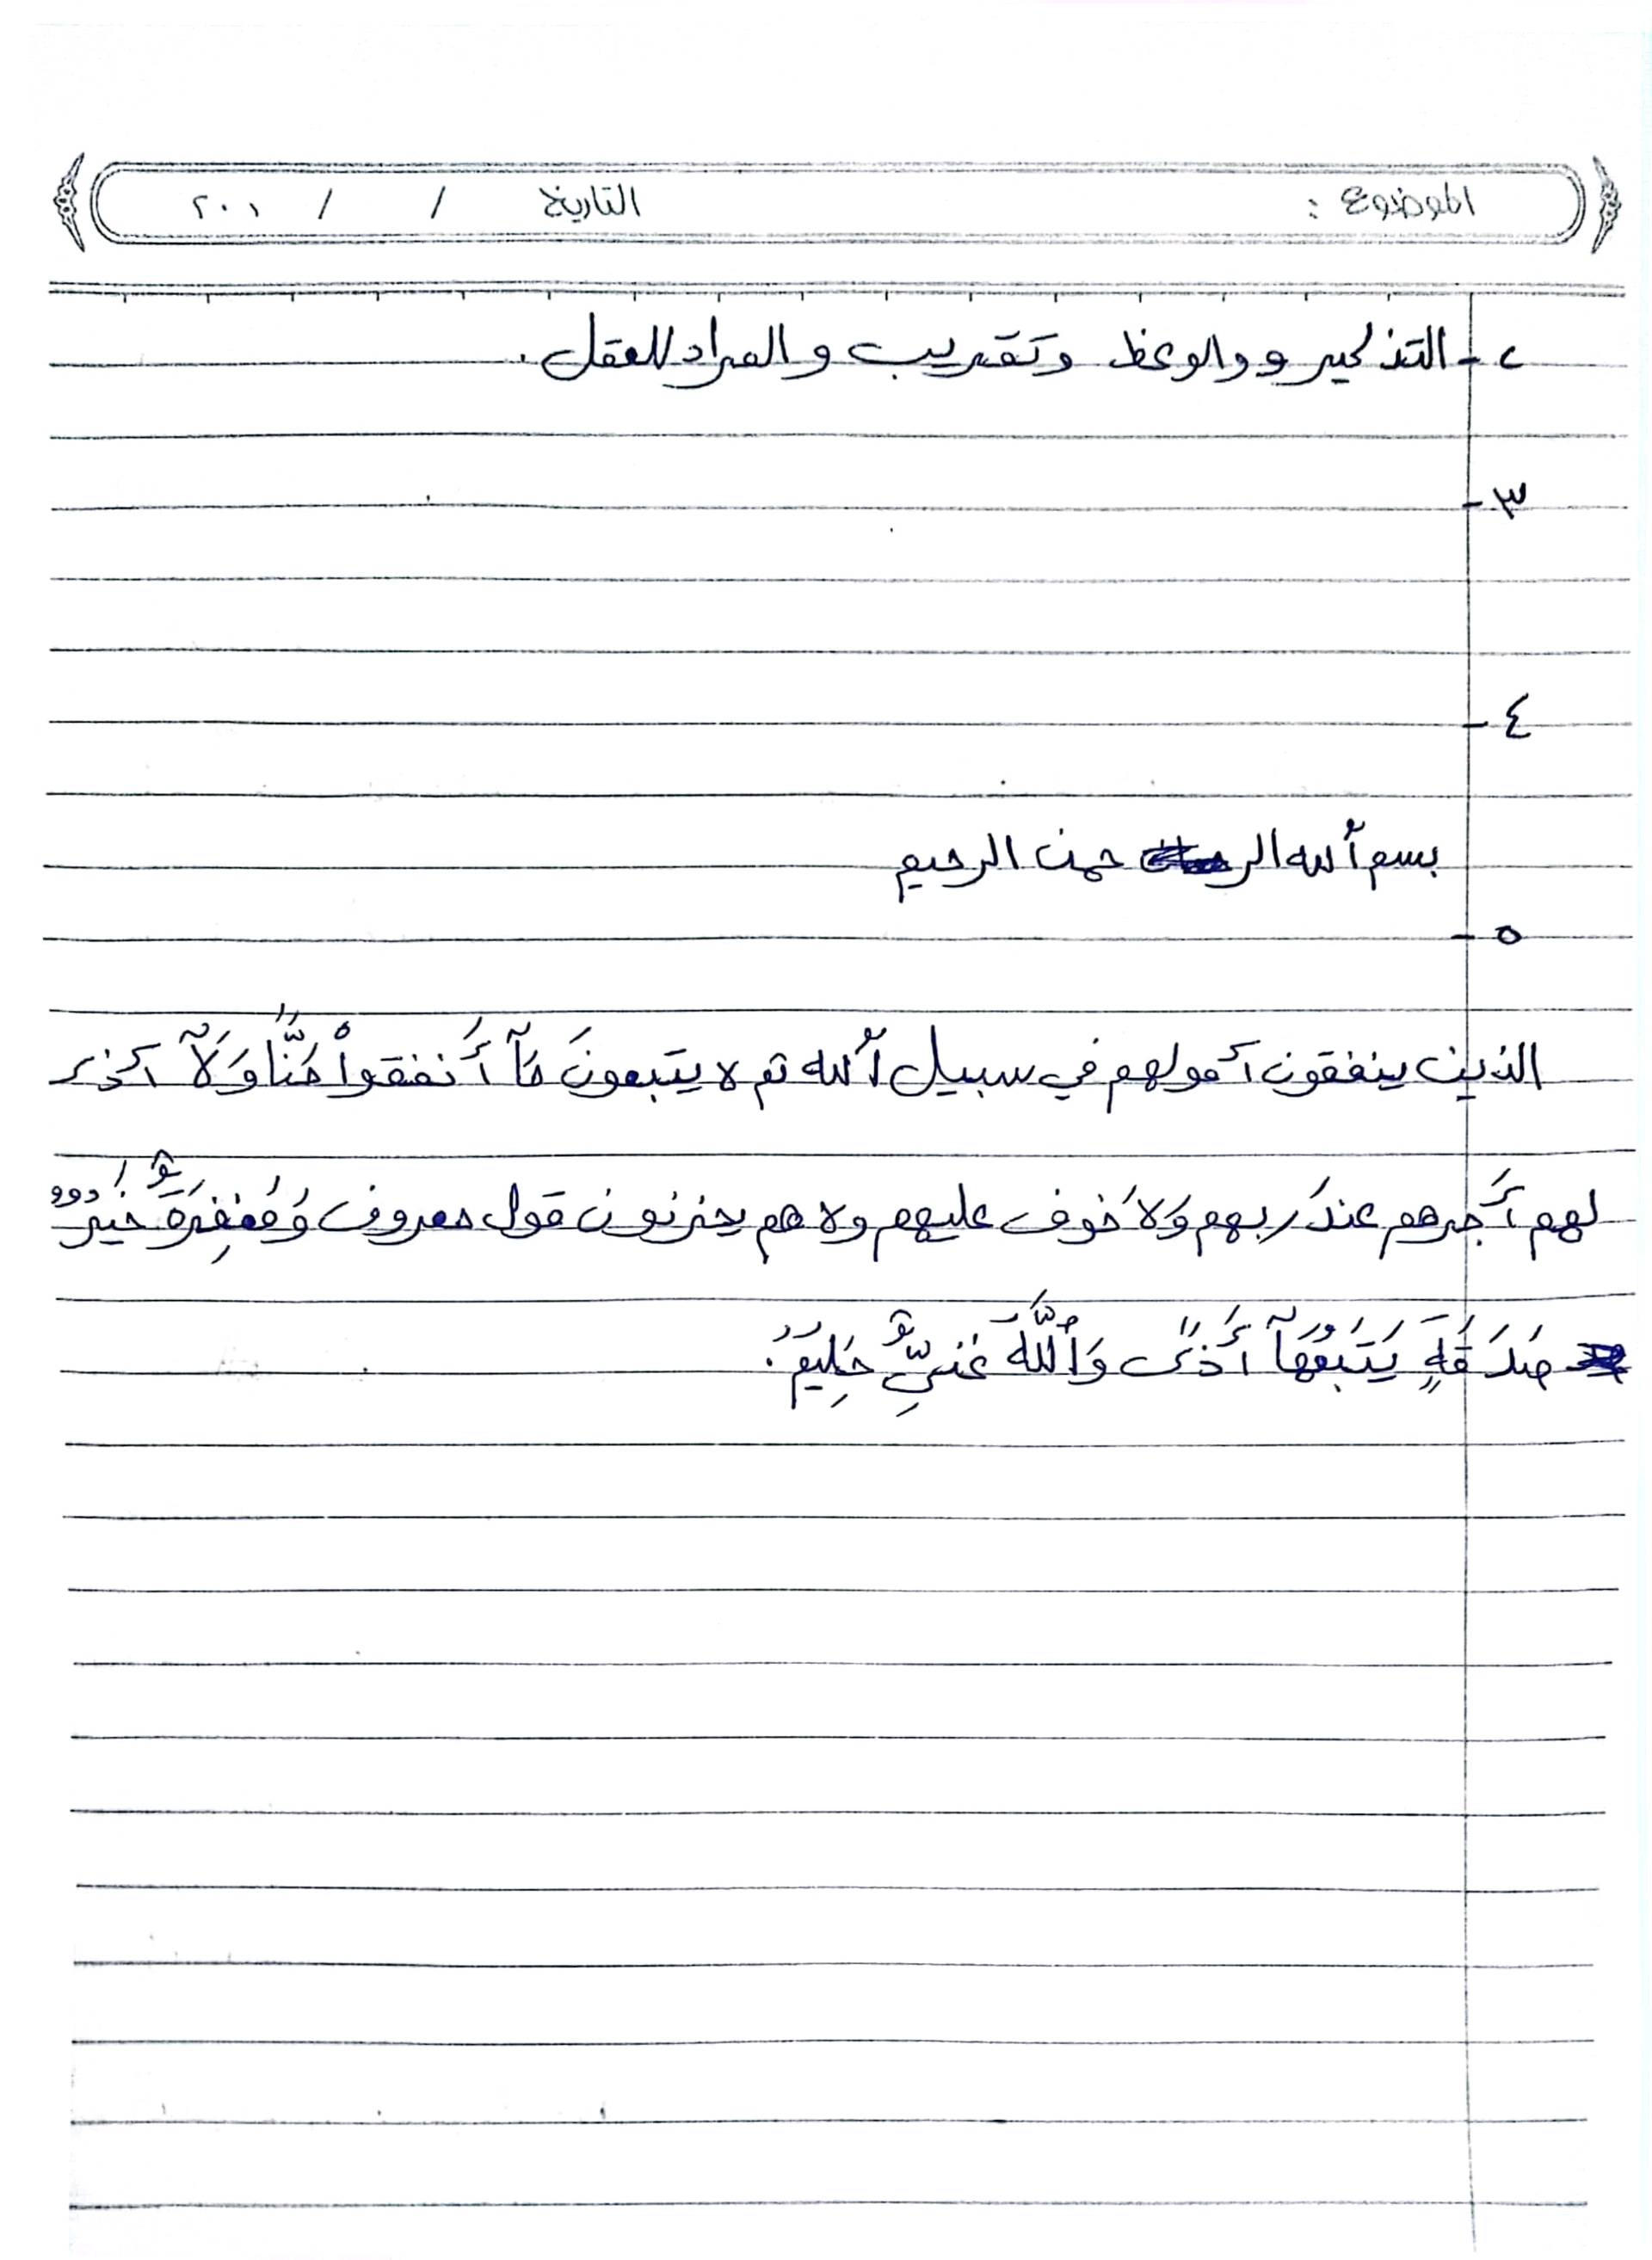 الموضوع : التاريخ / / ٢٠١
٢- التذكير ووالوعظ وتقريب والمراد للعقل.
٣-
٤-
بسم ٱلله الر حمن الرحيم
٥-
الذين ينفقون أمولهم في سبيل ٱلله ثم لا يتبعونَ مَآ أَنفقواْ مَنًّا وَلَآ أذى
لهم أَجرهم عندَ ربهم وَلَا خوف عليهم ولا هم يحزنون قول معروف وَمَغفِرَةٌ خَيرٌ
صَدَقَةٍ يَتبَعُهَآ أَذًى وَٱللَّهُ غَنِيٌّ حَلِيمٌ.